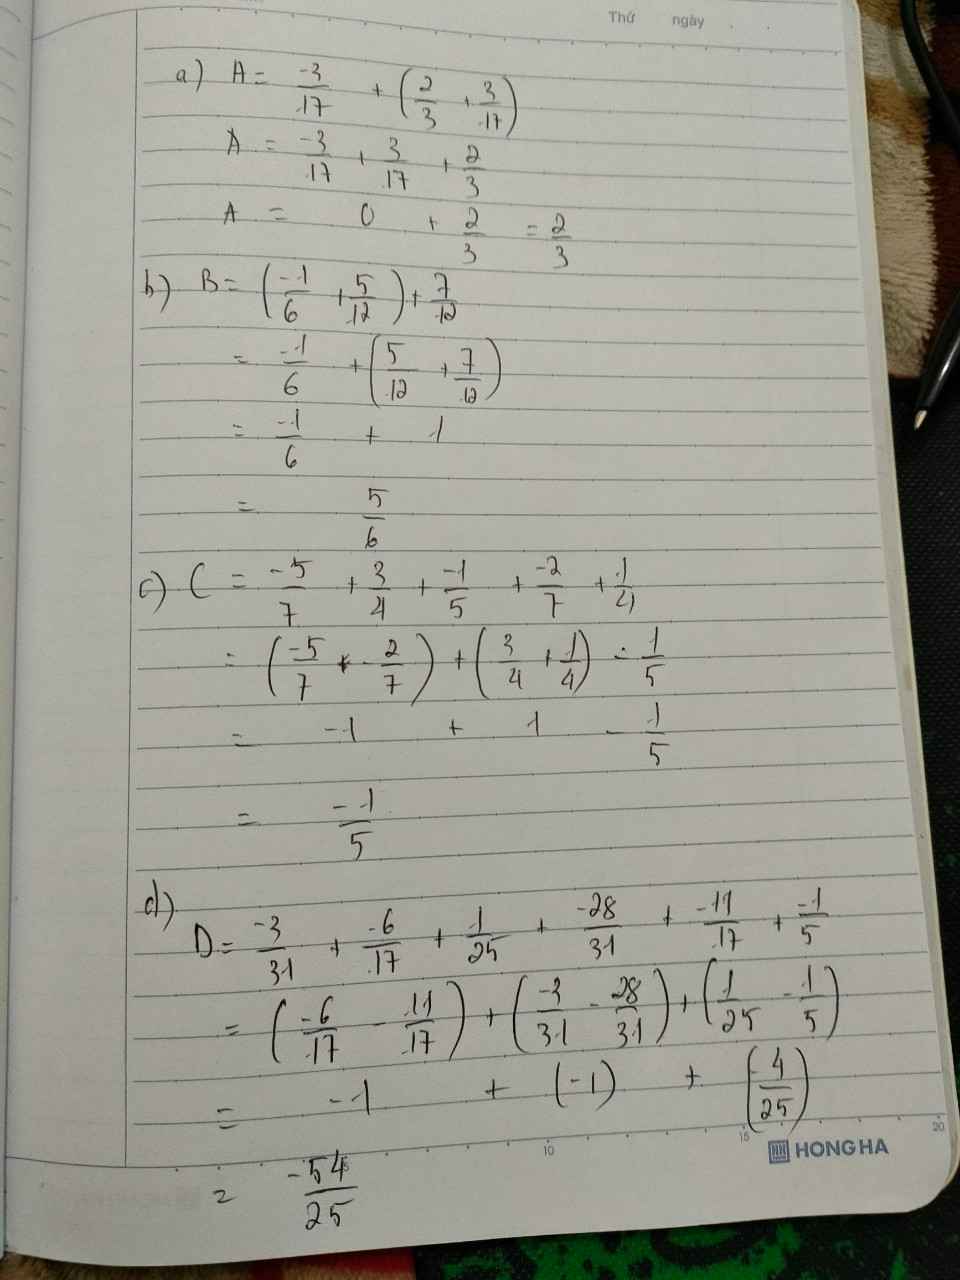 Thứ ngày . .
a) A = -3/17 + (2/3 + 3/17)
A = -3/17 + 3/17 + 2/3
A = 0 + 2/3 = 2/3
b) B = (-1/6 + 5/12) + 7/12
= -1/6 + (5/12 + 7/12)
= -1/6 + 1
= 5/6
c) C = -5/7 + 3/4 + -1/5 + -2/7 + 1/4
= (-5/7 - 2/7) + (3/4 + 1/4) - 1/5
= -1 + 1 - 1/5
= -1/5
d)
D = -3/31 + -6/17 + 1/25 + -28/31 + -11/17 + -1/5
= (-6/17 - 11/17) + (-3/31 - 28/31) + (1/25 - 1/5)
= -1 + (-1) + (-4/25)
10 15 20
HONG HA
= -54/25